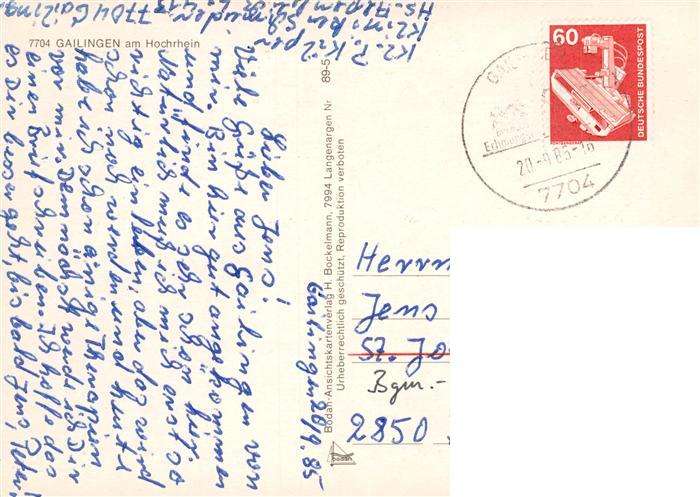 7704 GAILINGEN am Hochrhein
Lieber Jens!
Viele Grüße aus Gailingen von
mir. Bin hier gut angekommen
und finde es sehr schön hier.
Natürlich muß ich mich erst so
richtig einleben, aber das wird
schon noch werden und heute
habe ich schon einige Therapien
vor mir. Demnächst werde ich Dir
einen Brief schreiben. Ich hoffe das
es Dir besser geht, bis bald Jens, Peter!
7704 Gailingen
Gailingen 20/9.85
Bodan-Ansichtskartenverlag H. Bockelmann, 7994 Langenargen Nr 89-5
Urheberrechtlich geschützt, Reproduktion verboten
bodan
60
DEUTSCHE BUNDESPOST
20.-9.85-16
7704
Herrn
Jens
St. Jo
Bgm.-
2850